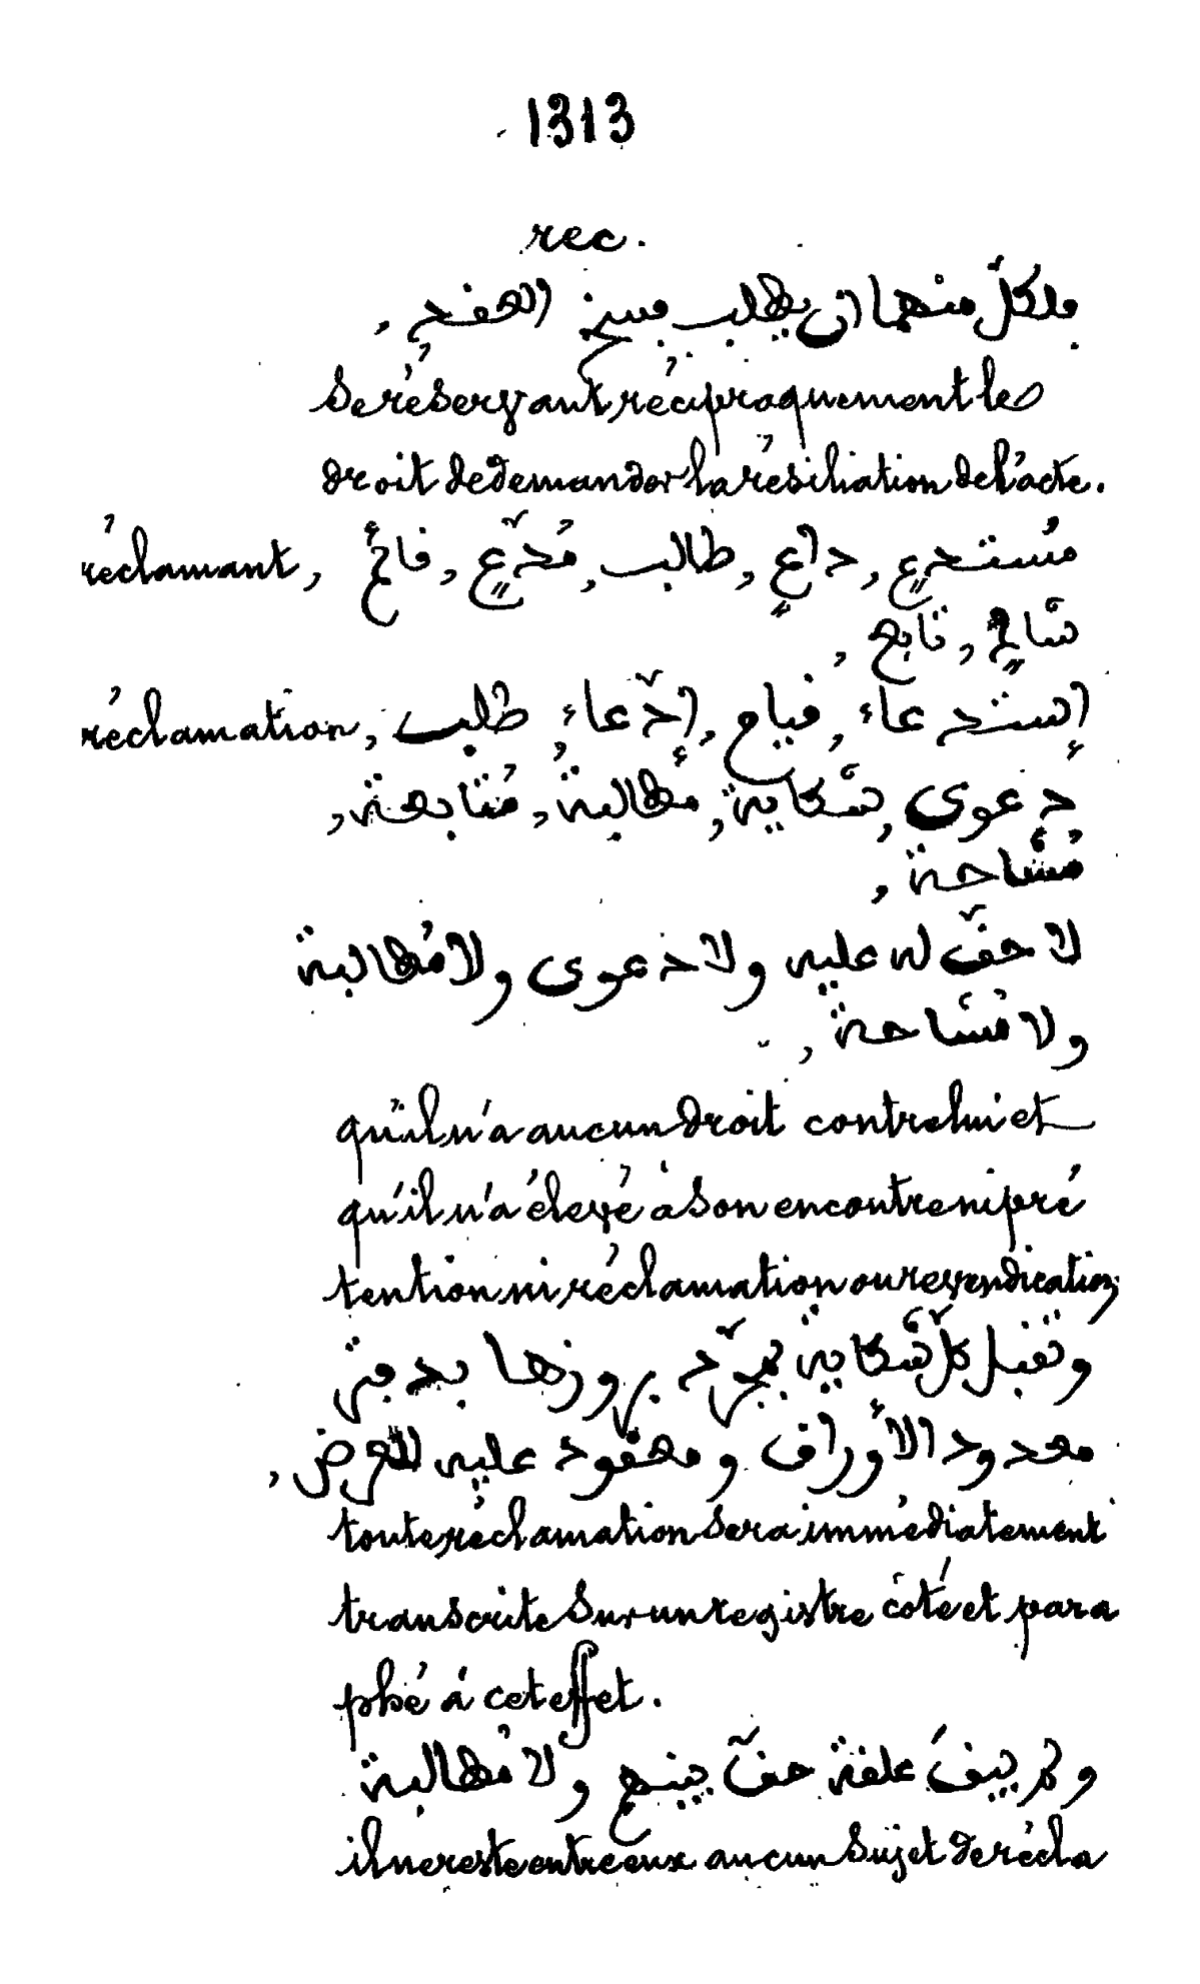 1313
rec.
فلكلّ منهما ان يطلب فسخ العقد,
se réservant réciproquement le
droit de demander la résiliation de l'acte.
réclamant, مُستدعٍ, داعٍ, طالب, مُدّعٍ, قائمٌ,
شاكٍ, تابع,
réclamation, إستدعاء, قيام, إدّعاء, طلب,
دعوى, شكاية, مُطالبة, مُتابعة,
مُشاحة,
لا حقّ له عليه ولا دعوى ولا مُطالبة
ولا مُشاحة,
qu'il n'a aucun droit contre lui et
qu'il n'a élevé à son encontre ni pré
tention ni réclamation ou revendication;
وتقبل كلّ شكاية بمجرّد بروزها بدفتر
معدود الأوراق ومعقود عليه للغرض,
toute réclamation sera immédiatement
transcrite sur un registre côté et para
phé à cet effet.
ولم يبقَ علقة حقّ بينهم ولا مُطالبة
il ne reste entre eux aucun sujet de récla